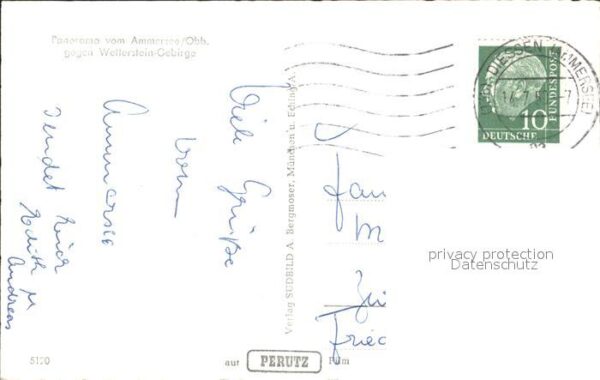 Panorama vom Ammersee/Obb.
gegen Wetterstein-Gebirge
Viele Grüße
vom
Ammersee
sendet Euch
Edith u.
Andreas
Verlag SÜDBILD A. Bergmoser, München u. Echling A.
DIESSEN AMMERSEE
10
DEUTSCHE
BUNDESPOST
privacy protection
Datenschutz
Fried
5120
auf PERUTZ Film